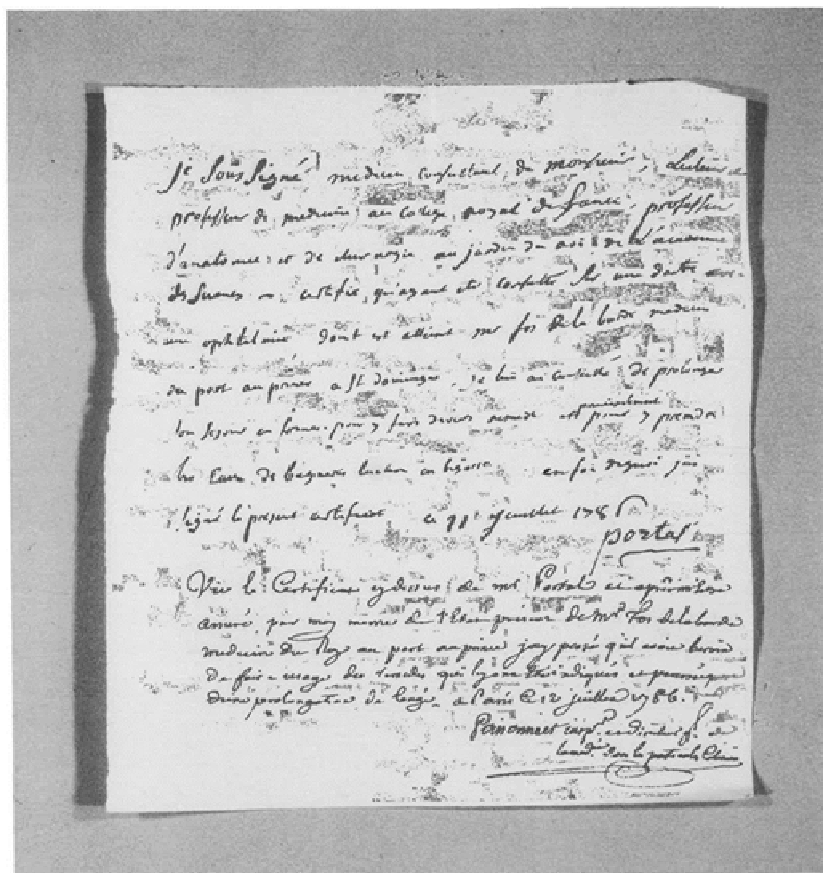 Je soussigné medecin consultant de monsieur, Lecteur
professeur de medecine au college royal de france, professeur
d'anatomie et de chirurgie au jardin du roi de l'academie
des siences certifie, qu'ayant eté consulté sur une dartre
une ophtalmie dont est atteint mr fos de la borde medecin
du port au prince a st domingue, je lui ai conseillé de prolonger
son sejour en france pour y faire divers remede et particulierement pour y prendre
les Eaux de bagneres luchon en bigorre en foi de quoi jai
signé le present certificat ce 11 juillet 1786
portal
Vu le Certificat cydessus de mr Portal et apres mètre
assuré par moy meme de l'Etat de Mr. Fos de la borde
medecin du Roy au port au prince jay pensé qu'il avoit besoin
de faire usage des remedes qui luy ont été indiqués et
d'une prolongation de congé. a Paris ce 12 juillet 1786.